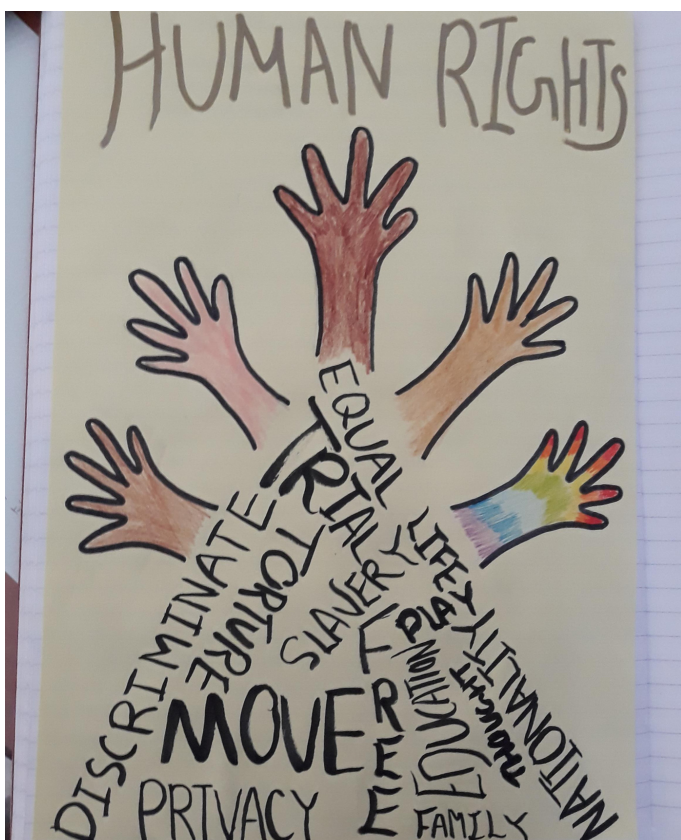 HUMAN RIGHTS
EQUAL
TRIAL
LIFE
DISCRIMINATE
TORTURE
SLAVERY
PLAY
NATIONALITY
FREE
EDUCATION
THOUGHT
MOVE
PRIVACY
FAMILY